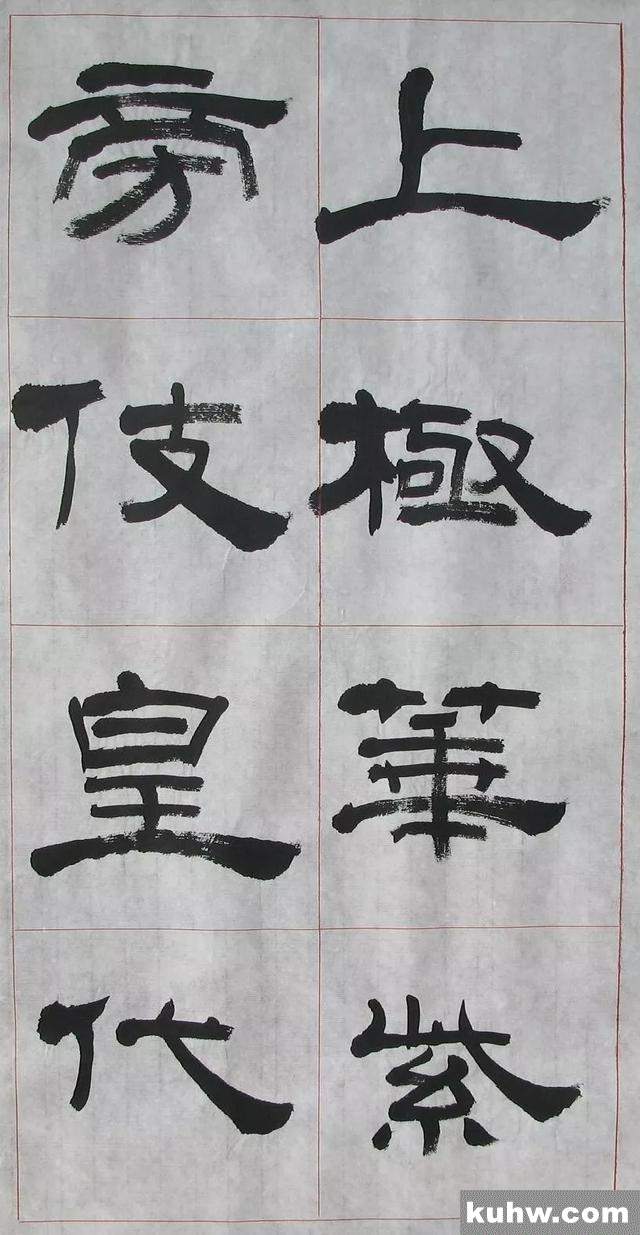 上極華紫
旁伎皇代
kuhw.com